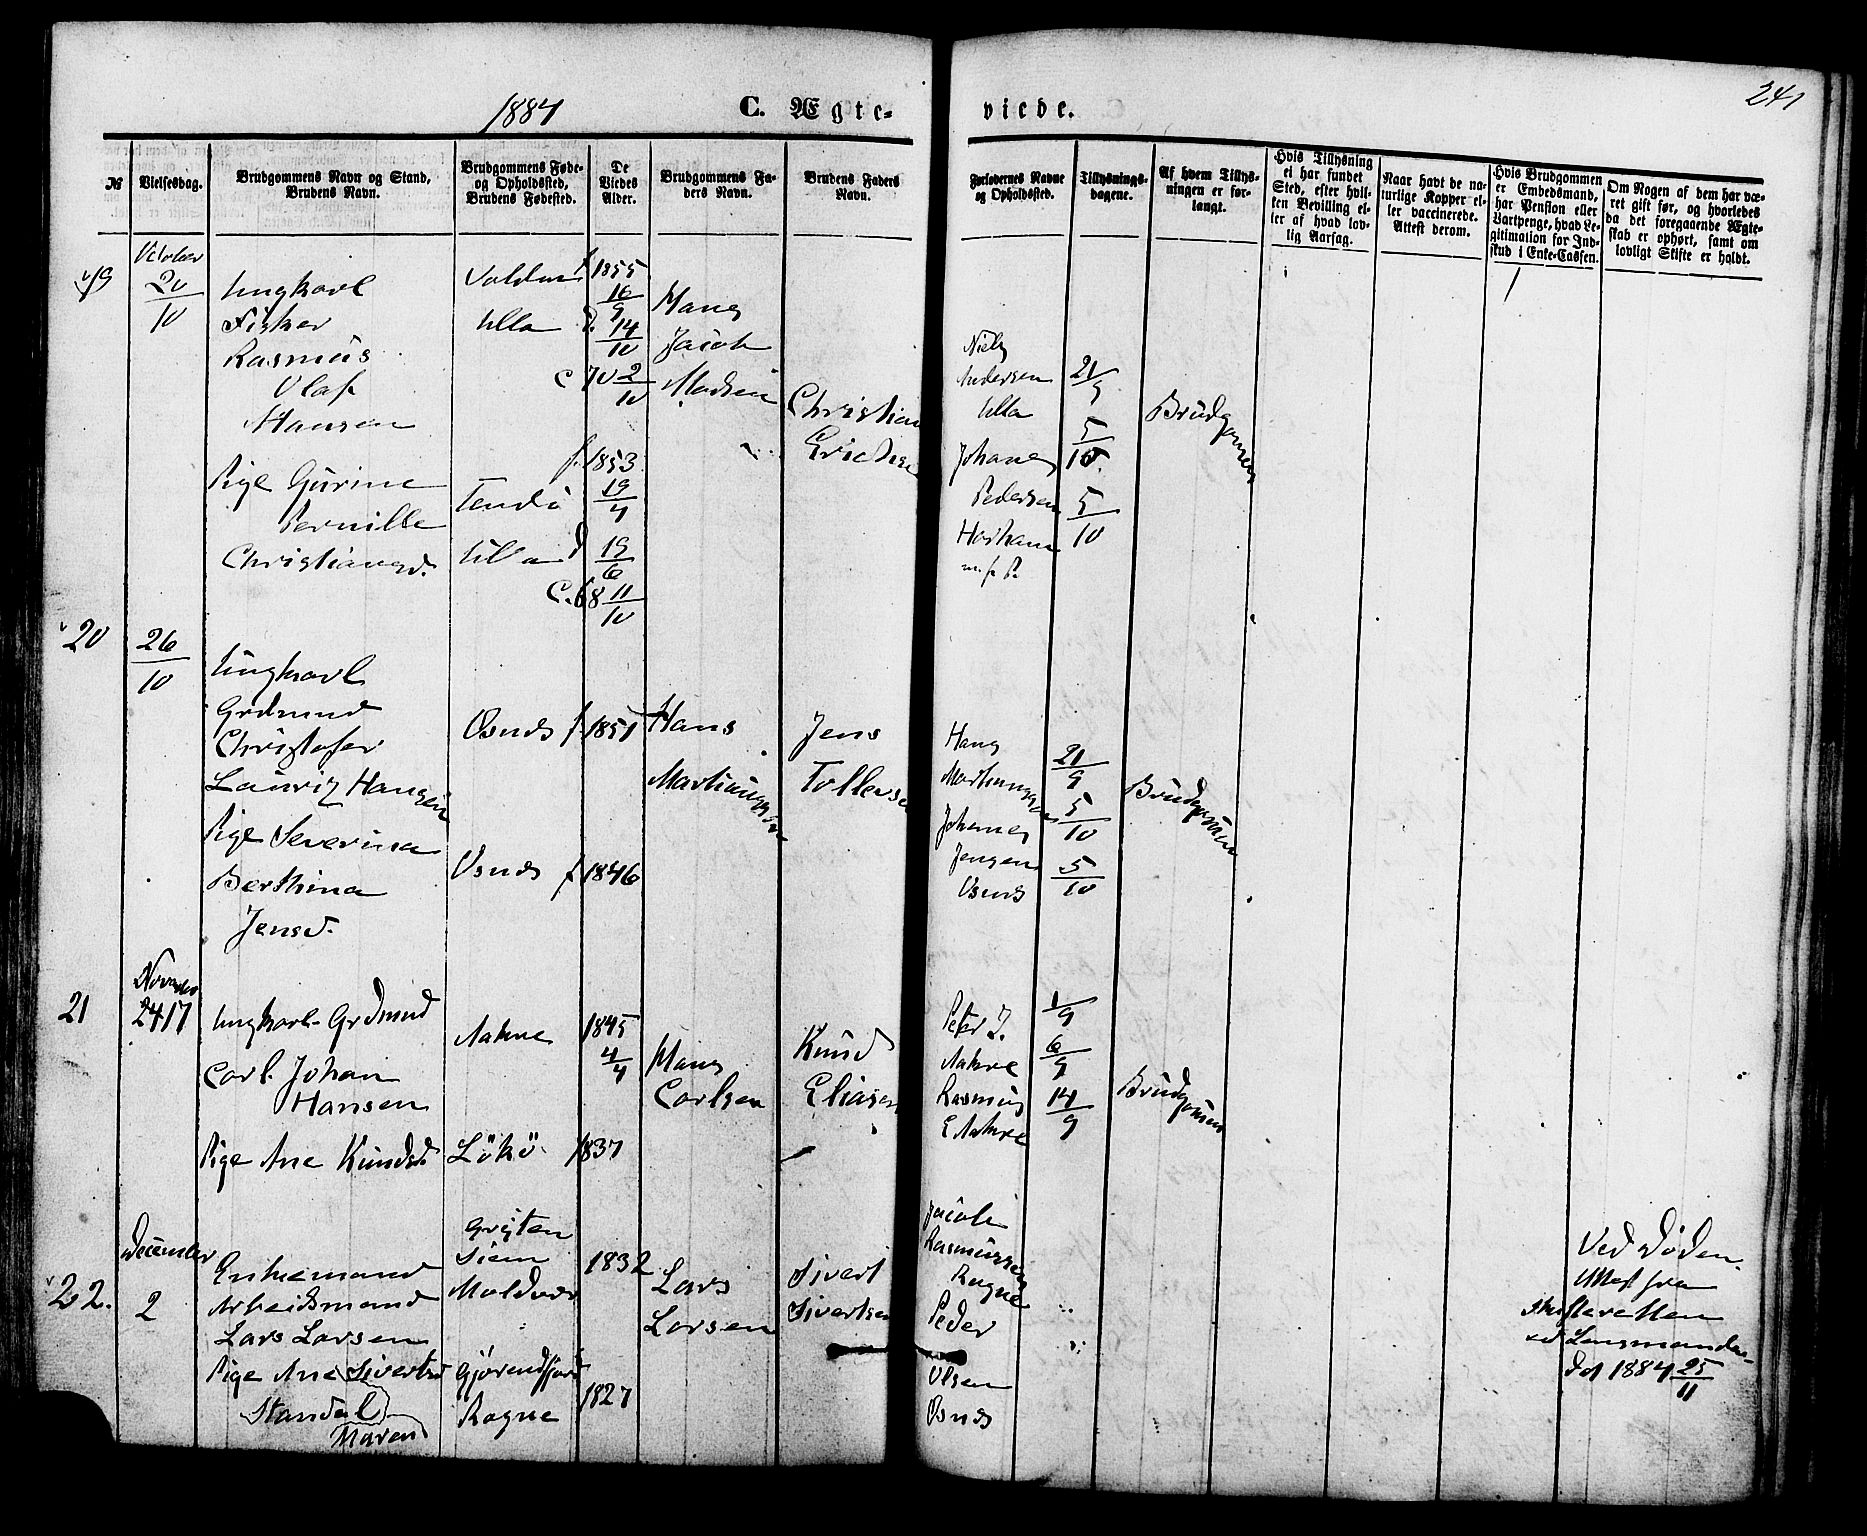 1884
C. Ægte-
viede.
241
№
Vielsesdag.
Brudgommens Navn og Stand,
Brudens Navn.
Brudgommens Føde-
og Opholdssted,
Brudens Fødested.
De
Viedes
Alder.
Brudgommens Fa-
ders Navn.
Brudens Faders
Navn.
Forlovernes Navne
og Opholdssted.
Tillysnings-
dagene.
Af hvem Tillys-
ningen er for-
langt.
Hvis Tillysning
ei har fundet
Sted, efter hvil-
ken Bevilling el-
ler af hvad lov-
lig Aarsag.
Naar havt de na-
turlige Kopper el-
ler vaccinerede.
Attest derom.
Hvis Brudgommen
er Embedsmand,
har Pension eller
Vartpenge, hvad Le-
gitimation for Ind-
skud i Enke-Cassen.
Om Nogen af dem har væ-
ret gift før, og hvorledes
da det foregaaende Ægte-
skab er ophørt, samt om
lovligt Skifte er holdt.
19
October
20
10
Ungkarl
Fisker
Rasmus
Olaf
Hansen
Pige Gurine
Pernille
Christiansd.
Volden
Ulla
Ulla
f. 1855
16
9
d. 14
10
C 70 2
10
f. 1853
19
4
d 19
6
C. 68 11
10
Hans
Jacob
Madsen
Christian
Niels
Andersen
Ulla
Johanes
Pedersen
21
9
5
10
5
10
Brudgomen
20
26
10
Ungkarl
Grdmand
Christofer
Lauriz Hansen
Pige Severina
Berthina
Jensd.
Osnes
Osnes
f. 1851
f 1846
Hans
Martinussen
Jens
Hans
Martinussen
Johanes
Jensen
Osnes
21
9
5
10
5
10
Brudgomen
21
November
24 17
Ungkarl Grdmand
Carl Johan
Hansen
Pige Ane Knudsd.
Aakre
Lökö
1845
4
4
1837
Hans
Carlsen
Knud
Eliasen
Peter J.
Aakre
Rasmus
E Aakre
1
9
6
9
14
9
Brudgomen
22.
December
2
Enkemand
Arbeidsmand
Lars Larsen
Pige Ane Sivertsd
Standal
Maren
Grytten
Moldvær
Rogne
1832
1827
Lars
Larsen
Sivert
Sivertsen
Jacob
Rasmussen
Rogne
Peder
Olsen
Osnes
Ved Døden.
Attest fra
Skifteretten
ved Lensmanden
Dat 1884 25
11